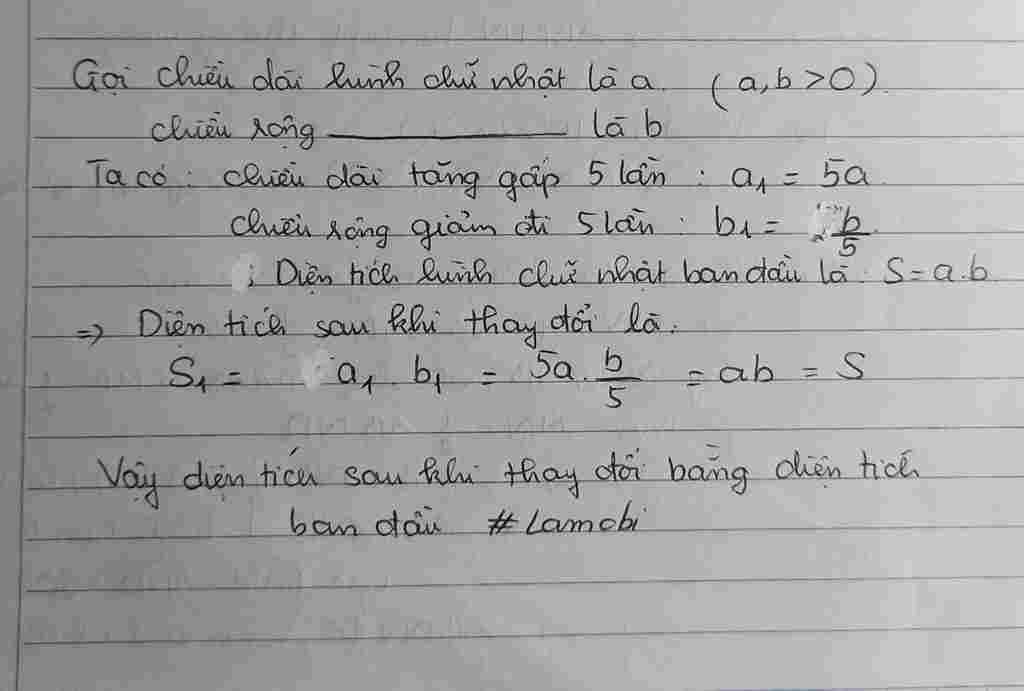 Gọi chiều dài hình chữ nhật là a. (a,b>0).
chiều rộng ———— là b
Ta có: chiều dài tăng gấp 5 lần : a₁ = 5a.
chiều rộng giảm đi 5 lần : b₁ = b/5
; Diện tích hình chữ nhật ban đầu là : S=a.b
=> Diện tích sau khi thay đổi là.
S₁ = a₁ . b₁ = 5a . b/5 = ab = S
Vậy diện tích sau khi thay đổi bằng diện tích
ban đầu #Lamobi